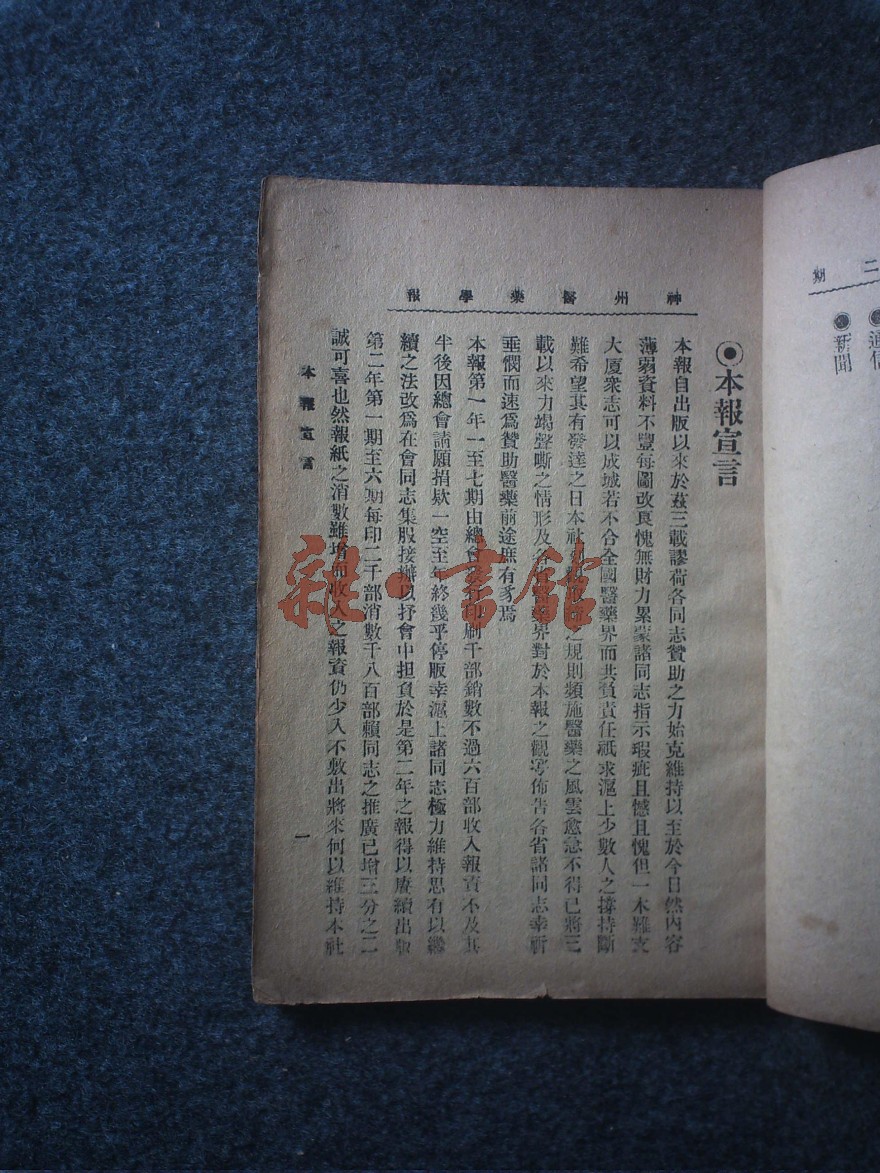 二期
通信
新聞
神州醫藥學報
本報宣言
本報自出版以來於茲三載謬荷各同志贊助之力始克維持以至於今日然內容
薄弱資料不豐每圖改良愧無財力累蒙諸同志指示瑕疵且憾且愧但一木難支
大厦衆志可以成城若不合全國醫藥界而共負責任祇求滬上少數人之撐持斷
難希望其有發達之日本社之規則頻施醫藥之風雲愈急不得已將三
載以來力竭聲嘶之情形及各省醫藥界對於本報之觀寫佈告各省諸同志幸祈
垂憫而速爲贊助醫藥前途庶有豸焉
本報第一年一至七期由總會印刷千部銷數不過六百部收入報資不及其
半後因總會請願捐欵一空至年終幾乎停版幸滬上諸同志極力維持思有以繼
續之法改爲在會同志集股接辦以抒會中担負於是第二年之報得以賡續出版
第二年第一期至六期每印二千部消數千八百部賴同志之推廣已增三分之二
誠可喜也然報紙之消數雖增而收入之報資仍少入不敷出將來何以維持本社
本報宣言
一
雜·書館